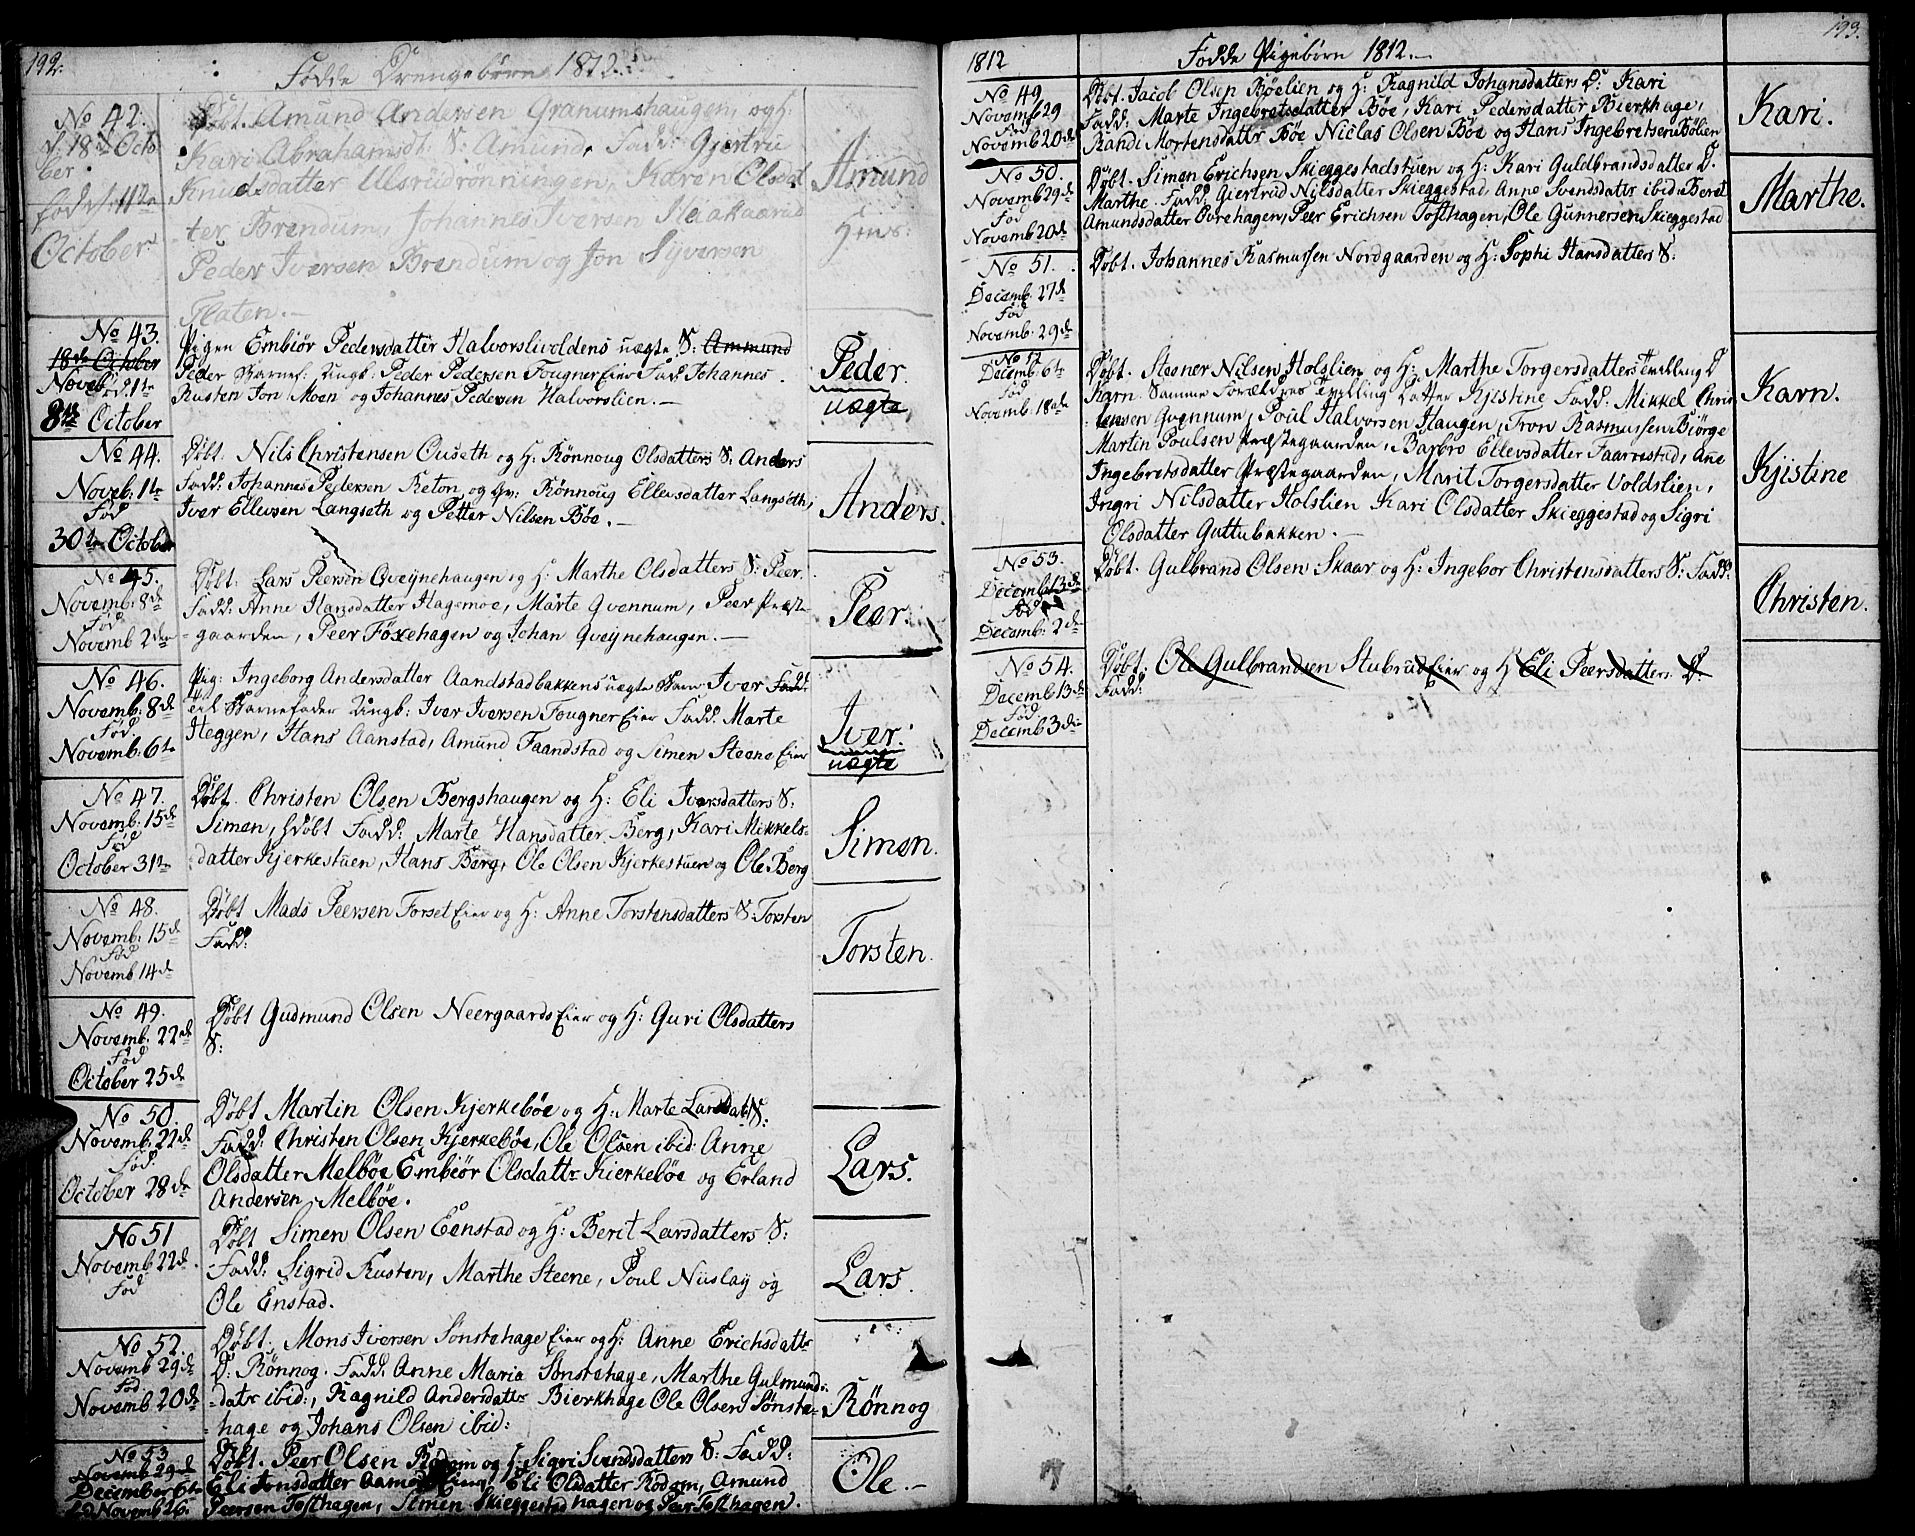 192.
Fødde Drengebørn 1812.
No 42.
d. 18de Octo
ber
fød 11te
October
Døbt. Amund Andersen Granumshaugen, og H:
Kari Abrahamsdt. S: Amund, Fadd: Gjertru
Knudsdatter Ulsrudrønningen, Karen Olsdat
ter Brendum, Johannes Iversen
Peder Iversen Brendum og Jon Syversen
Flaten.
Amund
No 43.
18de October
Noveb: 1te
Fød
8de October
Pigen Embiør Pedersdatter Halvorslivoldens uægte S: Ammund
Peder Barnef: Ungk: Peder Pedersen Fougner Eier Fad: Johannes
Rusten Jon Moen og Johannes Pedersen Halvorslien.
Peder.
uægte
No 44.
Noveb: 1te
Fød
30te October
Døbt. Nils Christensen Ouseth og H: Rønnoug Olsdatters S: Anders
Fadd: Johannes Pedersen Reton, og Gv: Rønnoug Ellevsdatter Langseth,
Iver Ellevsen Langseth og Petter Nilsen Bøe.
Anders.
No 45.
Novemb: 8de
Fød
Novemb 2den
Døbt: Lars Peersen Qveynehaugen og H: Marthe Olsdatters S: Peer.
Fadd: Anne Hansdatter Hagemoe, Marte Qvennum, Peer Præste
gaarden, Peer Foxehagen og Johan Qveynehaugen.
Peer.
No 46.
Novemb: 8de
Fød.
Novemb: 6te
Pig: Ingeborg Andersdatter Aandstadbakkens uægte Barn Iver Fadd:
til Barnefader Ungk: Iver Iversen Fougner Eier Fadd. Marte
Heggen, Hans Aanstad, Amund Faandstad og Simen Steene Eier
Iver.
uægte
No 47.
Novemb: 15de
Fød
October 31te
Døbt. Christen Olsen Bergshaugen og H: Eli Iversdatters S:
Simen, hdøbt Fadd: Marte Hansdatter Berg, Kari Mikkels-
datter Kjerkestuen, Hans Berg, Ole Olsen Kjerkestuen og Ole Berg
Simen.
No 48.
Novemb: 15de
Fød
Novemb 14de
Døbt Mads Peersen Forset Eier og H: Anne Torstensdatters S: Torsten
Fadd:
Torsten.
No 49.
Novemb. 22de
Fød
October 25de
Døbt Gudmund Olsen Neergaards Eier og H: Guri Olsdatters
S:
No 50.
Novemb: 22de
Fød.
October 28de
Døbt Martin Olsen Kjerkebøe og H: Marte Larsdat S:
Fadd: Christen Olsen Kjerkebøe, Ole Olsen ibid: Anne
Olsdatter Melbøe Embiør Olsdattr Kierkebøe og Erland
Andersen Melbøe.
Lars.
No 51
Novemb 22de.
Fød
Døbt Simen Olsen Eenstad og H: Berit Larsdatters S:
Fadd: Sigrid Rusten, Marthe Steene, Poul Niislay og
Ole Enstad.
Lars.
No 52.
Novemb 29de
Fød
Novemb 20de
Døbt. Mons Iversen Sønstehage Eier og H: Anne Erichsdattr
D: Rønnog. Fadd: Anne Maria Sønstehage, Marthe Gulmunds-
datr ibid:, Ragnild Andersdattr Bierkhage Ole Olsen Sønste-
hage og Johans Olsen ibid:
Rønnog
No 53
Novemb 29de
December 6te
fød Novemb 26.
Døbt. Peer Olsen Rødom og H: Sigri Svendsdatters S: Fadd:
Eli Jonsdatter Aamod Eier, Eli Olsdatter Rodom, Amund
Peersen Tofthagen, Simen Skieggestadhagen og Peer Tofthagen.
Ole.
193.
1812
Fødde Pigebørn 1812.
No 49
Novemb 29
Fød
Novemb 20de
Døbt. Jacob Olsen Bøelien og H: Ragnild Johansdatters D: Kari
Fadd: Marte Ingebretsdatter Bøe, Kari Pedersdatter Bierkhage,
Randi Mortensdattr Bøe Niclas Olsen Bøe og Hans Ingebretsen Bølien
Kari.
No 50.
Novemb 29de
Fød
Novemb 20de
Døbt. Simen Erichsen Skieggestadstuen og H: Kari Guldbrandsdatter D.
Marthe. Fadd: Giertrud Nilsdatter Skieggestad, Anne Svendsdattr ibid: Beret
Amundsdatter Øvrehagen, Peer Erichsen Tofthagen, Ole Gunnersen Skieggestad
Marthe.
No 51.
Decemb. 27de
Fød
Novemb: 29de
Døbt. Johannes Rasmussen Nordgaarden og H: Sophi Hansdatters S:
No 52
Decemb: 6te
Fød
Novemb: 18de
Døbt. Stener Nilsen Holslien og H: Marthe Torgersdatters Tvilling D
Karn. Samme Forældres Tvilling Datter Kjistine Fadd: Mikkel Chris
tensen Qvennum, Poul Halvorsen Haugen, Tron Rasmussen Biørge
Martin Poulsen Præstegaarden, Barbro Ellevsdatter Faarrestad, Ane
Ingebretsdatter Præstegaarden, Marit Torgersdatter Voldslien,
Ingri Nilsdatter Holslien Kari Olsdatter Skieggestad og Sigri
Olsdatter Guttubakken.
Karn.
Kjistine
No 53.
Decemb 13de
Fød
Decemb: 2de
Døbt. Gulbrand Olsen Skaar og H: Ingebor Christensdatters S: Fadd:
Christen.
No 54.
Decemb 13de
Fød
Decemb 3die
Døbt. Ole Gulbrandsen Stubrud Eier og H Eli Peersdatters D:
Fadd: